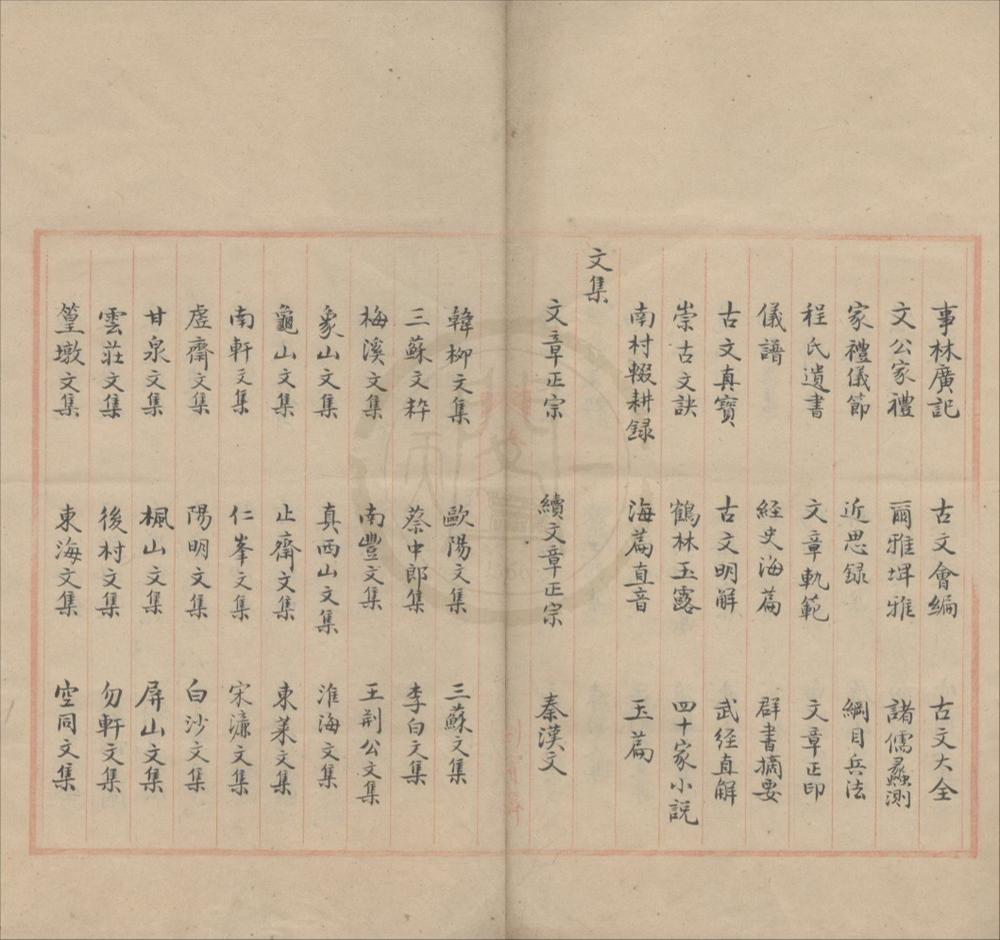 事林廣記　古文會編　古文大全
文公家禮　爾雅埤雅　諸儒蠡測
家禮儀節　近思録　綱目兵法
程氏遺書　文章軌範　文章正印
儀譜　経史海篇　群書摘要
古文真寶　古文明解　武經直解
崇古文訣　鶴林玉露　四十家小説
南村輟耕録　海篇直音　玉篇
文集
文章正宗　續文章正宗　秦漢文
韓柳文集　歐陽文集　三蘇文集
三蘇文粹　蔡中郎集　李白文集
梅溪文集　南豐文集　王荆公文集
象山文集　真西山文集　淮海文集
龜山文集　止齋文集　東萊文集
南軒文集　仁峯文集　宋濂文集
虚齋文集　陽明文集　白沙文集
甘泉文集　楓山文集　屏山文集
雲莊文集　後村文集　勿軒文集
篁墩文集　東海文集　空同文集